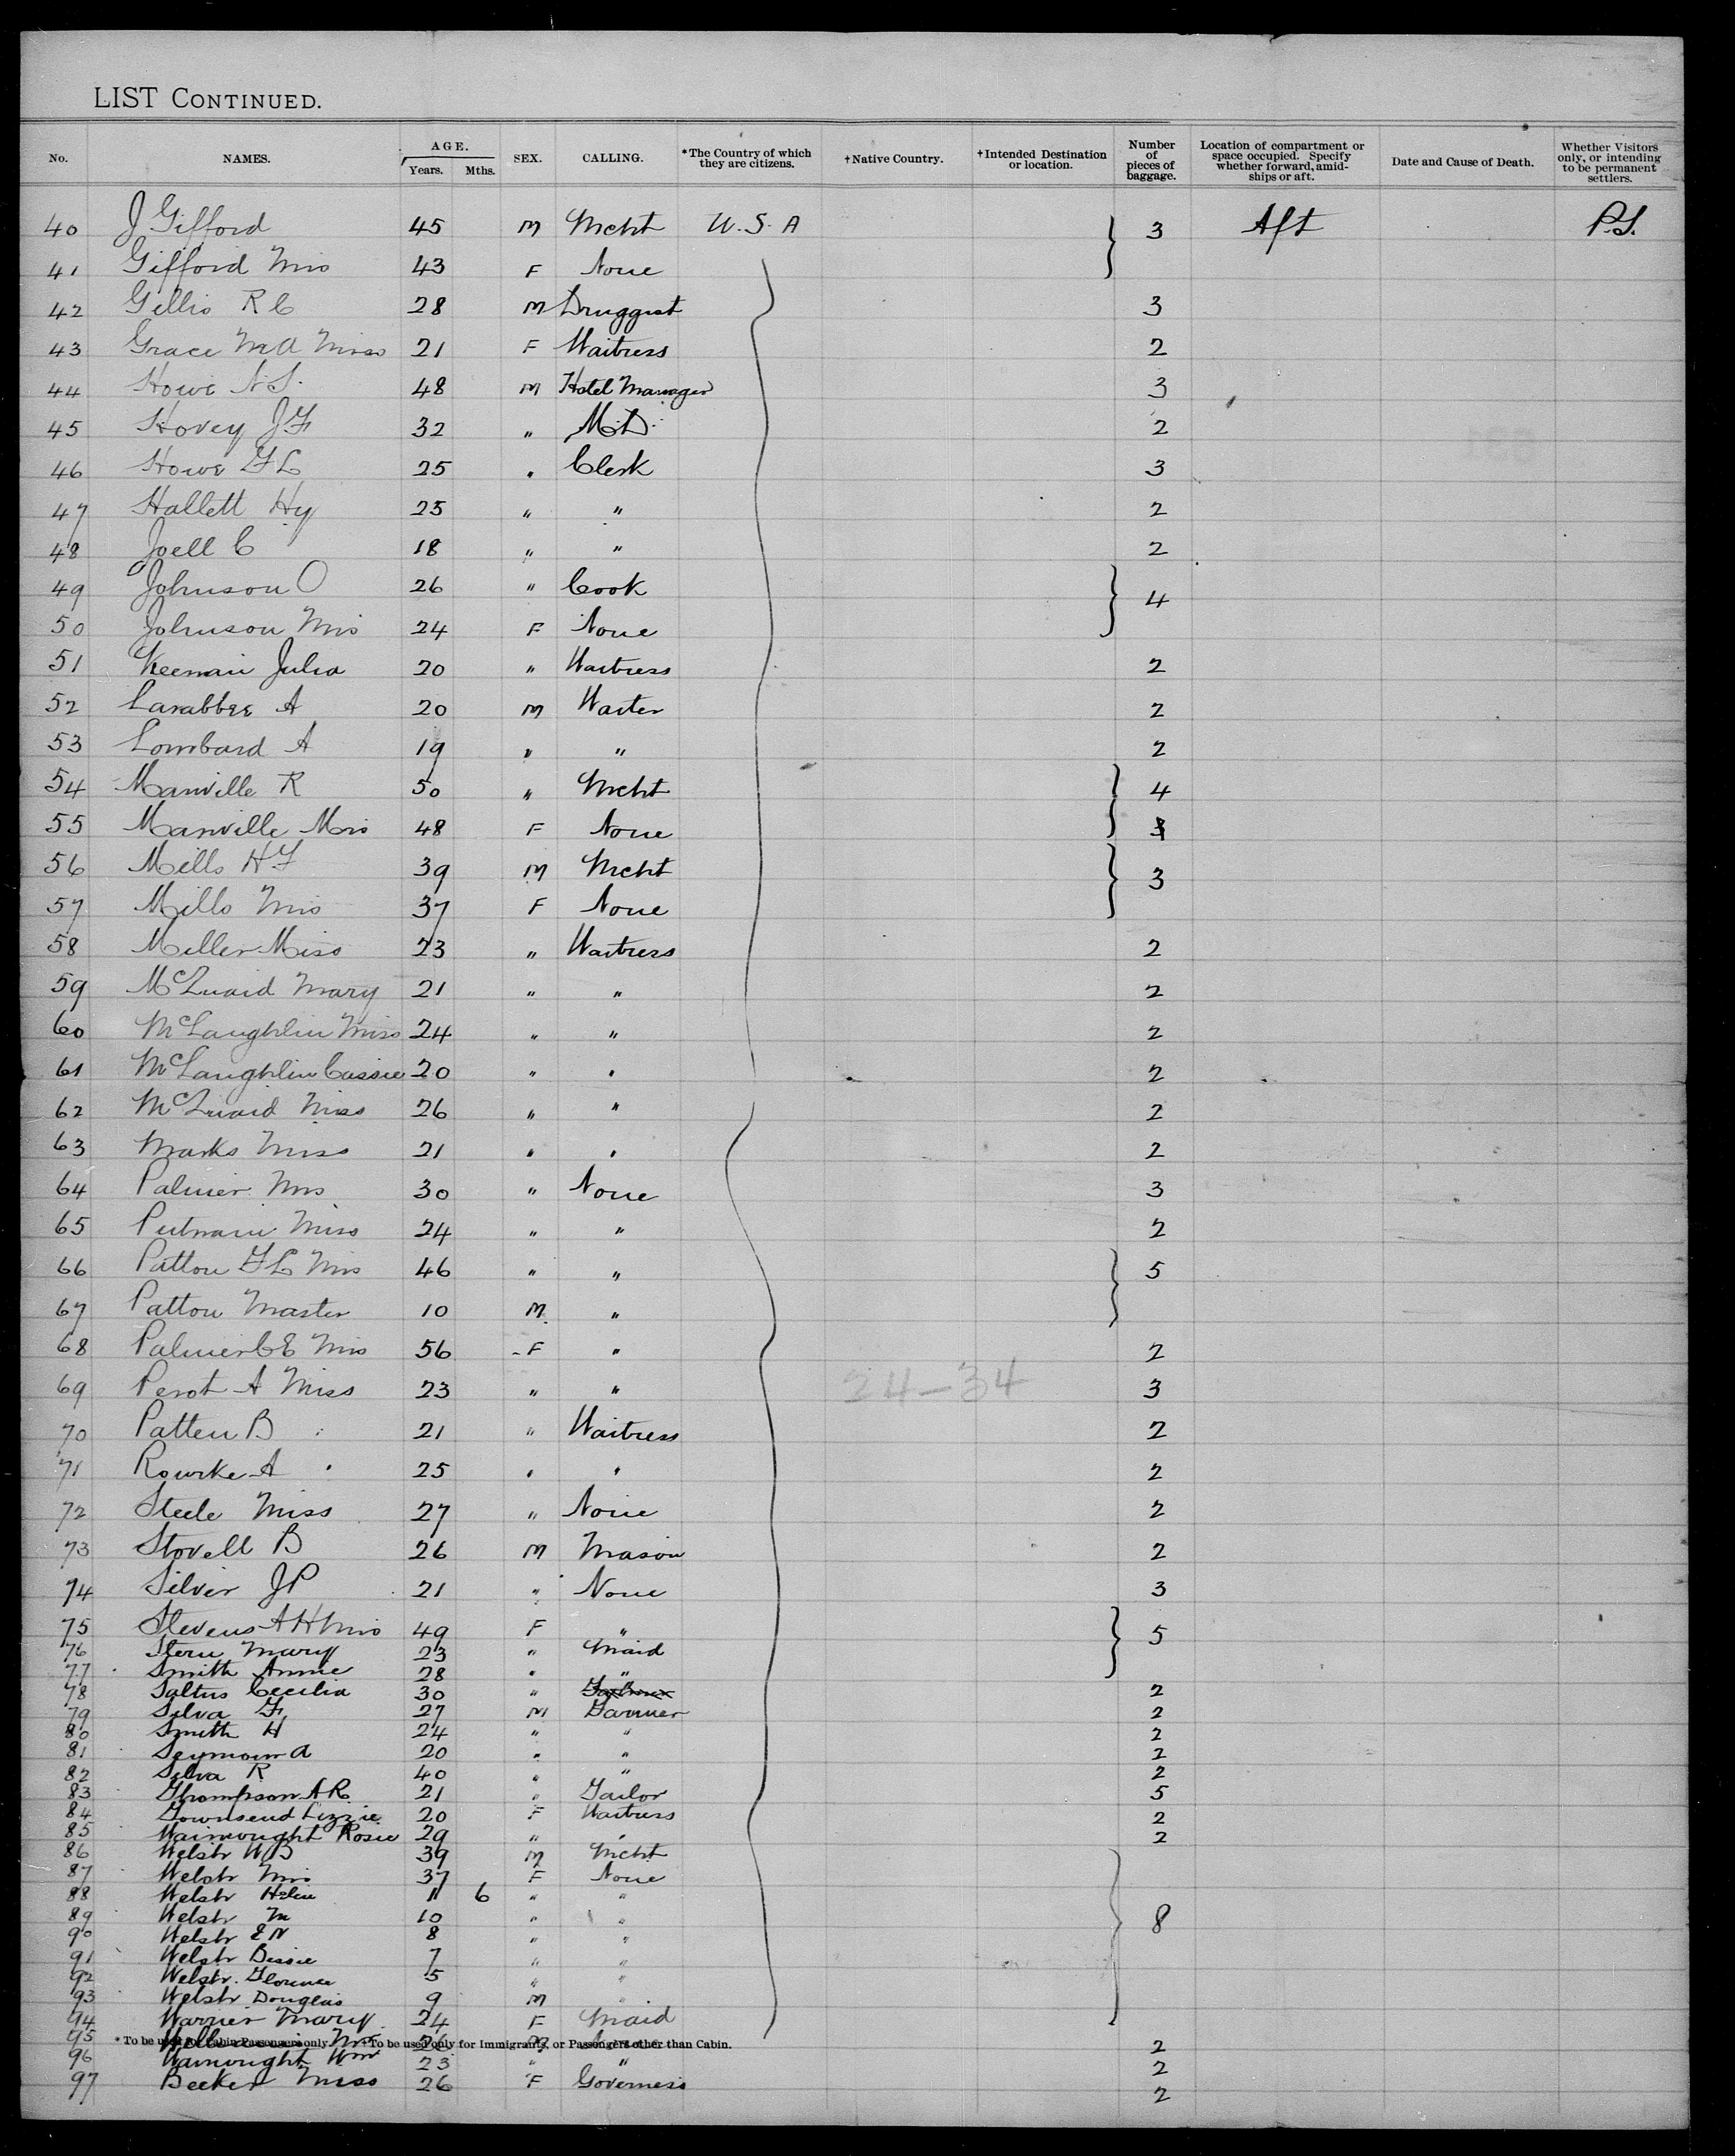 LIST CONTINUED.
No. NAMES. AGE. Years. Mths. SEX. CALLING. *The Country of which they are citizens. †Native Country. †Intended Destination or location. Number of pieces of baggage. Location of compartment or space occupied. Specify whether forward, amidships or aft. Date and Cause of Death. Whether Visitors only, or intending to be permanent settlers.
40 J Gifford 45 M Mcht U.S.A 3 Aft P.S.
41 Gifford Mrs 43 F None
42 Gillis R C 28 M Druggist 3
43 Grace M A Miss 21 F Waitress 2
44 Howe N S. 48 M Hotel Manager 3
45 Hovey J F 32 " M.D. 2
46 Howe F L 25 " Clerk 3
47 Hallett Hy 25 " " 2
48 Joell C 18 " " 2
49 Johnson O 26 " Cook 4
50 Johnson Mrs 24 F None
51 Keenan Julia 20 " Waitress 2
52 Larabbee A 20 M Waiter 2
53 Lombard A 19 " " 2
54 Manville R 50 " Mcht 4
55 Manville Mrs 48 F None
56 Mills H F 39 M Mcht 3
57 Mills Mrs 37 F None
58 Miller Miss 23 " Waitress 2
59 Mary 21 " " 2
60 McLaughlin Miss 24 " " 2
61 McLaughlin Cassie 20 " " 2
62 Miss 26 " " 2
63 Marks Miss 21 " " 2
64 Palmer Mrs 30 " None 3
65 Putnam Miss 24 " " 2
66 Patton F L Mrs 46 " " 5
67 Patton Master 10 M. "
68 Palmer C E Mrs 56 F " 2
69 Perot A Miss 23 " " 24-34 3
70 Patten B 21 " Waitress 2
71 Rourke A 25 " " 2
72 Steele Miss 27 " None 2
73 Stovell B 26 M Mason 2
74 Silver J P 21 " None 3
75 Stevens A H Mrs 49 F " 5
76 Stern Mary 23 " Maid
77 Smith Annie 28 " "
78 Saltus Cecilia 30 " 2
79 Silva F 27 M Farmer 2
80 Smith H 24 " " 2
81 Seymour A 20 " " 2
82 Silva R 40 " " 2
83 Thompson A R 21 " Tailor 5
84 Townsend Lizzie 20 F Waitress 2
85 Wainwright Rosie 29 " " 2
86 Welsh W B 39 M Mcht
87 Welsh Mrs 37 F None
88 Welsh Helen 11 6 " "
89 Welsh M 10 " " 8
90 Welsh E N 8 " "
91 Welsh Bessie 7 " "
92 Welsh Florence 5 " "
93 Welsh Douglas 9 M "
94 Warner Mary 24 F Maid
95 26 2
*To be used for Cabin Passengers only. †To be used only for Immigrants, or Passengers other than Cabin.
96 Wainwright Wm 23 " " 2
97 Becker Miss 26 F Governess 2